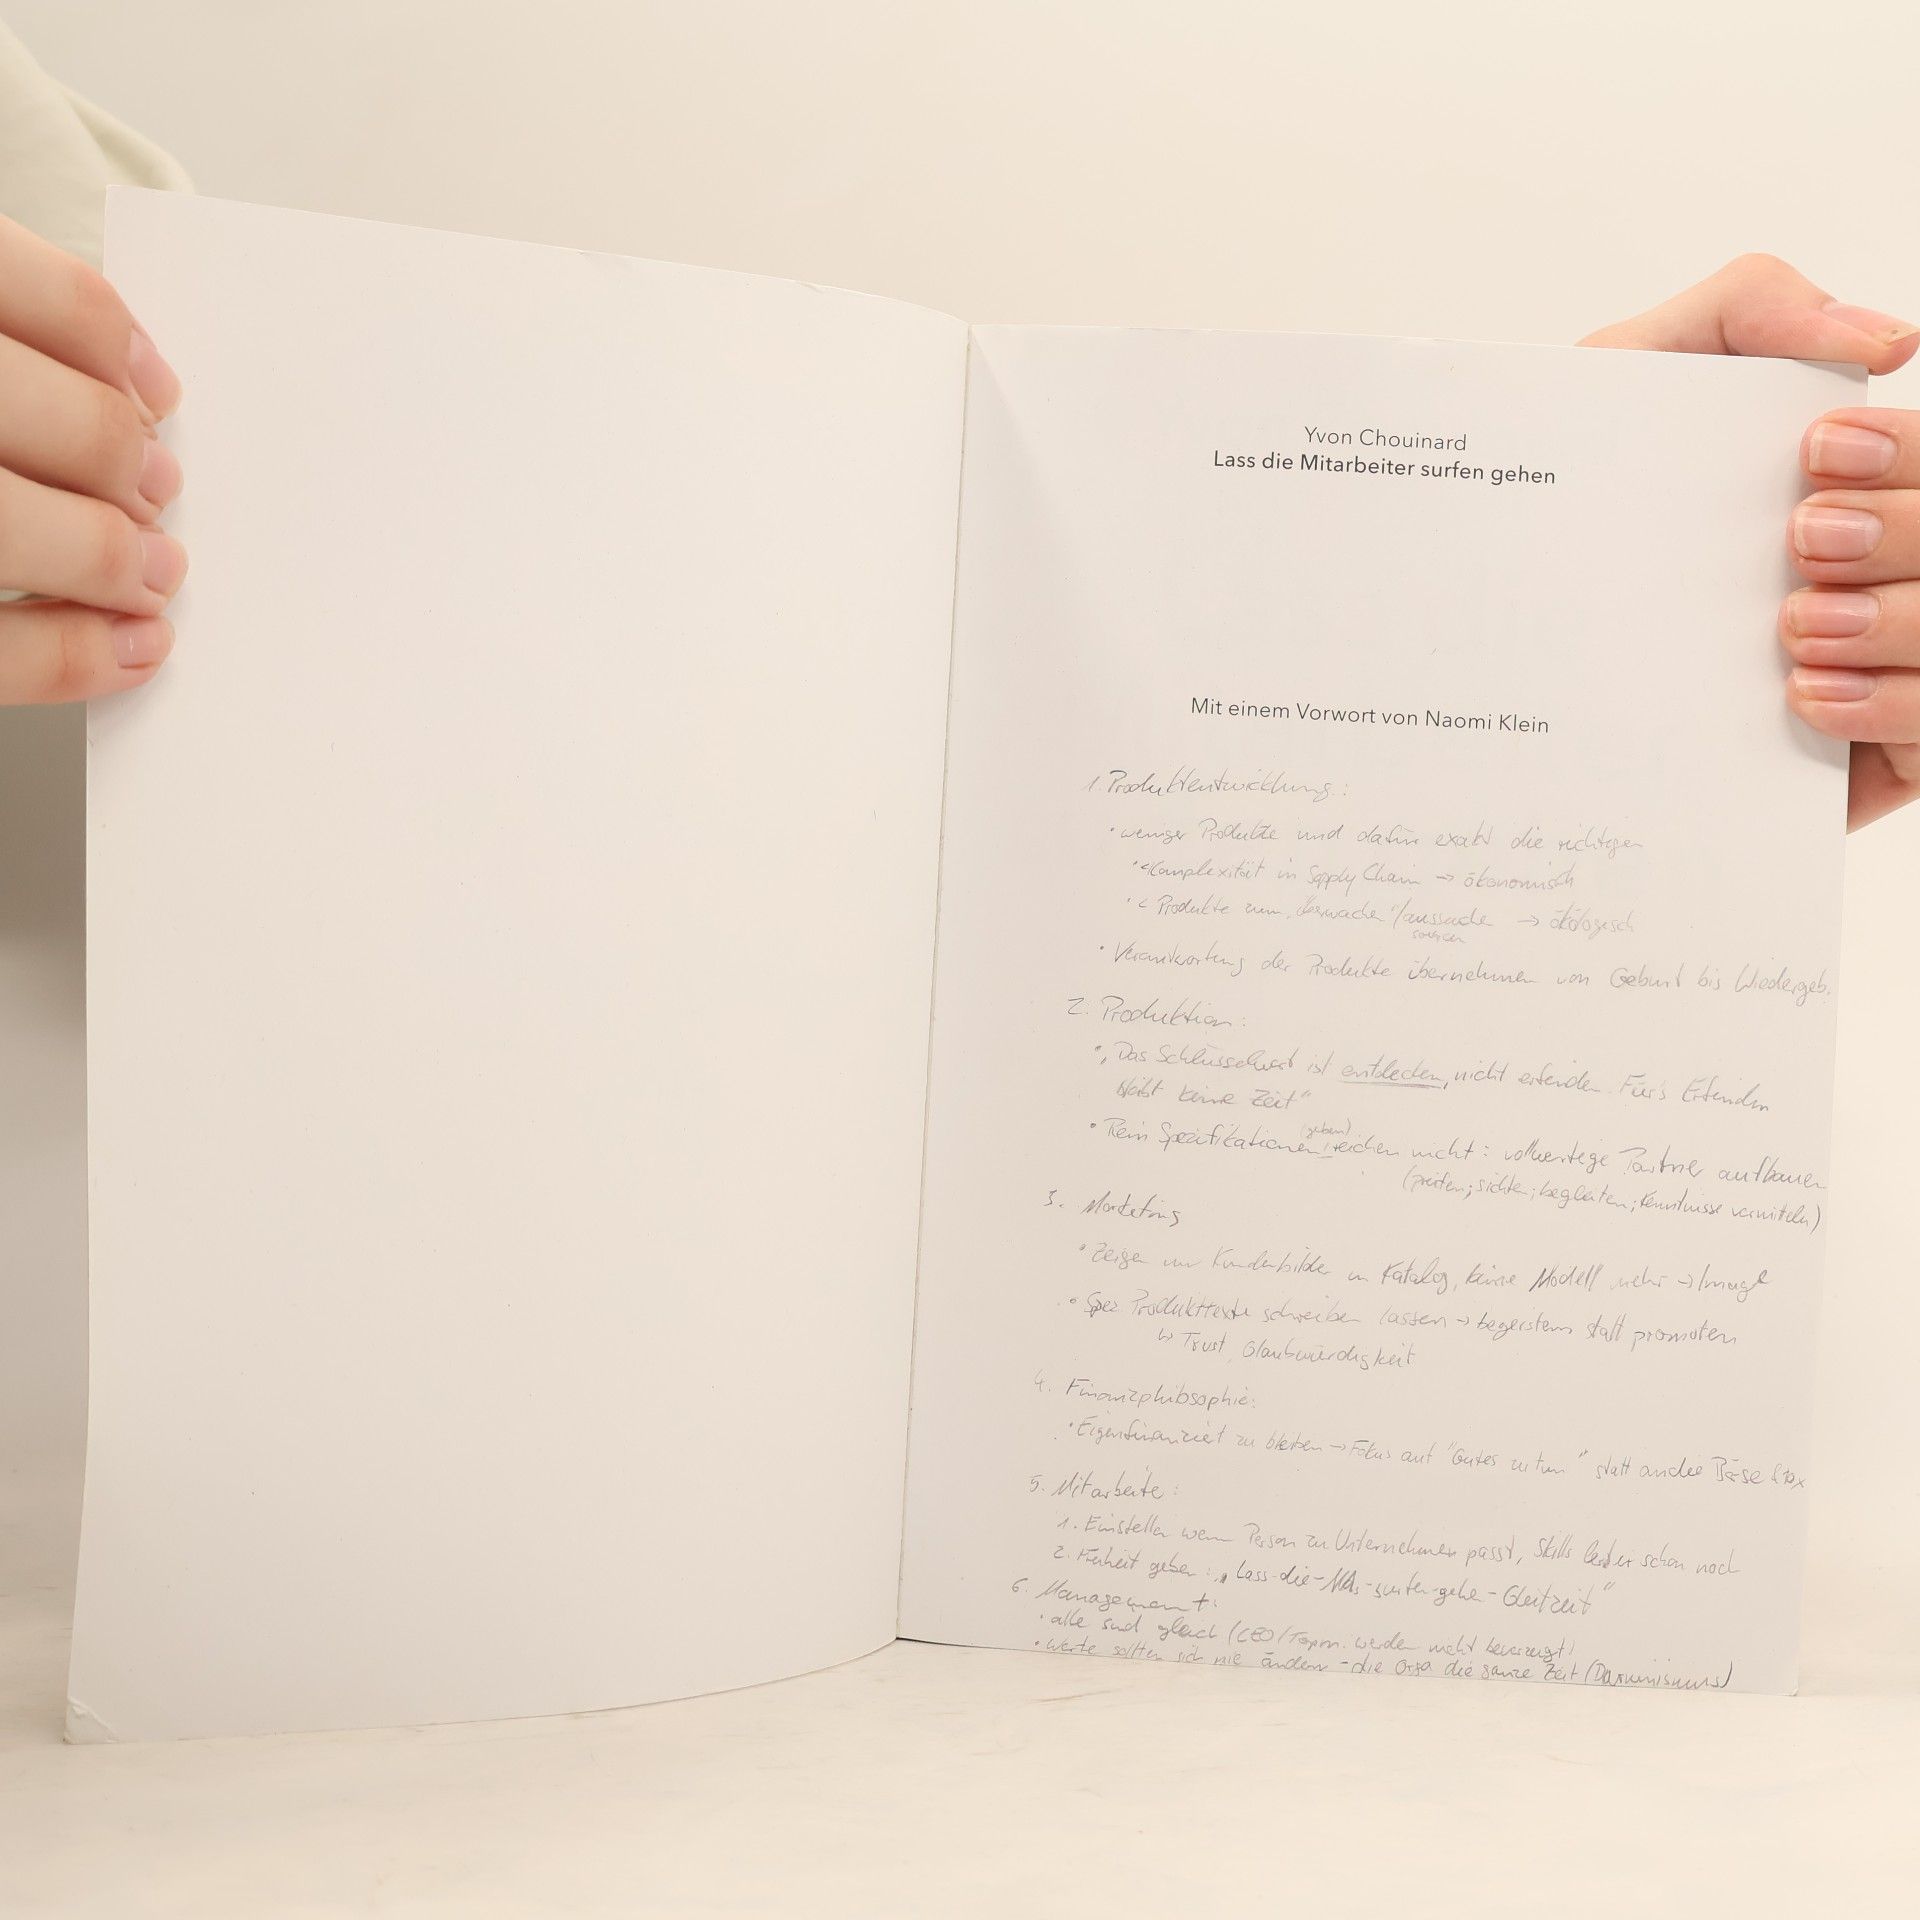 Yvon Chouinard
Lass die Mitarbeiter surfen gehen
Mit einem Vorwort von Naomi Klein
1. Produktentwicklung:
• weniger Produkte und dafür exakt die richtigen
• <Komplexität in Supply Chain → ökonomisch
• < Produkte zum /aussuchen → ökologisch
• Verantwortung der Produkte übernehmen von Geburt bis Wiedergeb.
2. Produktion:
• „Das Schlüsselwort ist entdecken, nicht erfinden. Für's Erfinden
bleibt keine Zeit"
(geben)
• Rein Spezifikationen reichen nicht: vollwertige Partner aufbauen
(prüfen; sichten; begleiten; Kenntnisse vermitteln)
3. Marketing
• Zeigen nur Kundenbilder im Katalog, keine Modell mehr → Image
• Spez. Produkttexte schreiben lassen → begeistern statt promoten
↳ Trust, Glaubwürdigkeit
4. Finanzphilosophie:
• Eigenfinanziert zu bleiben → Fokus auf "Gutes zu tun" statt an die Börse
5. Mitarbeiter:
1. Einstellen wenn Person zu Unternehmen passt, Skills lernt er schon noch
2. Freiheit geben: „Lass-die-MAs-surfen-gehen-Gleitzeit"
6. Management:
• alle sind gleich (CEO/Topm. werden nicht bevorzugt)
• Werte sollten sich nie ändern - die Orga die ganze Zeit (Darwinismus)